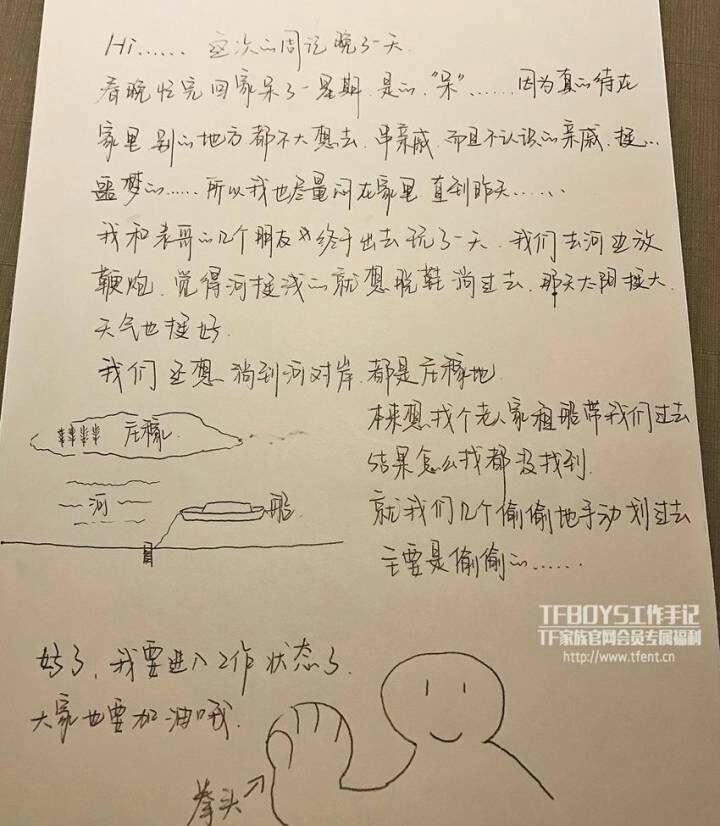 Hi...... 这次的周记晚了一天
春晚忙完回家呆了一星期 是的."呆"......因为真的待在
家里 别的地方都不大想去.串亲戚.而且不认识的亲戚.挺...
噩梦的......所以我也尽量闷在家里 直到昨天......
我和表哥的几个朋友 终于出去玩了一天.我们去河边放
鞭炮.觉得河挺浅的就想脱鞋淌过去.那天太阳挺大.
天气也挺好.
我们还想淌到河对岸.都是庄稼地
本来想找个老人家租船带我们过去
结果怎么找都没找到.
就我们几个偷偷地手动划过去
主要是偷偷的......
庄稼
河
船
TFBOYS工作手记
TF家族官网会员专属福利
http://www.tfent.cn
好了.我要进入工作状态了.
大家也要加油哦.
拳头